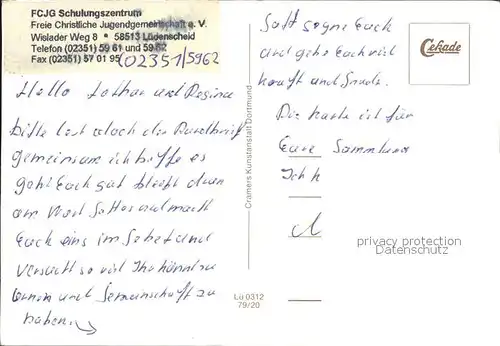 FCJG Schulungszentrum
Freie Christliche Jugendgemeinschaft e. V.
Wislader Weg 8 * 58513 Lüdenscheid
Telefon (02351) 59 61 und 59 62
Fax (02351) 57 01 95
02351/5962
Hallo Lothar und Regina
bitte lest doch den Rundbrief
gemeinsam ich hoffe es
geht Euch gut bleibt dran
am Wort Gottes und macht
Euch eins im Gebet und
versucht so viel Ihr könnt zu
lernen und Gemeinschaft zu
haben.
Gott segne Euch
und gebe Euch viel
Kraft und Gnade.
Die Karte ist für
Eure Sammlung
Cekade
Cramers Kunstanstalt Dortmund
Lü 0312
79/20
privacy protection
Datenschutz